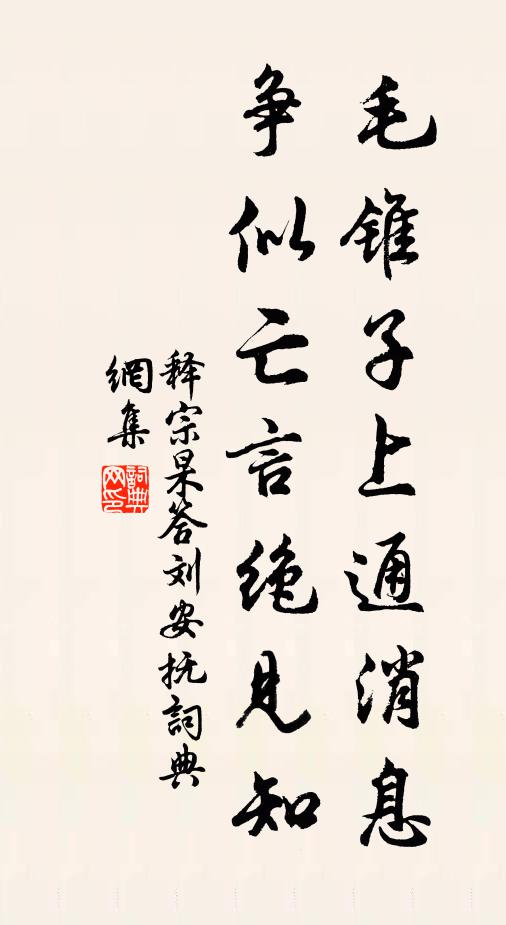 毛錐子上通消息
争似亡言绝見知
释宗杲答刘安抚詞典
網集
詞典網印